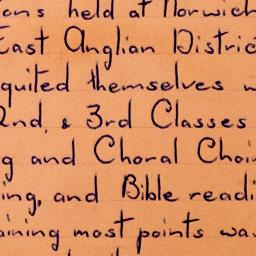 ons held at Norwich
East Anglian Distric
quited themselves w
2nd, & 3rd Classes
g and Choral Choi
ing, and Bible readi
aining most points wa